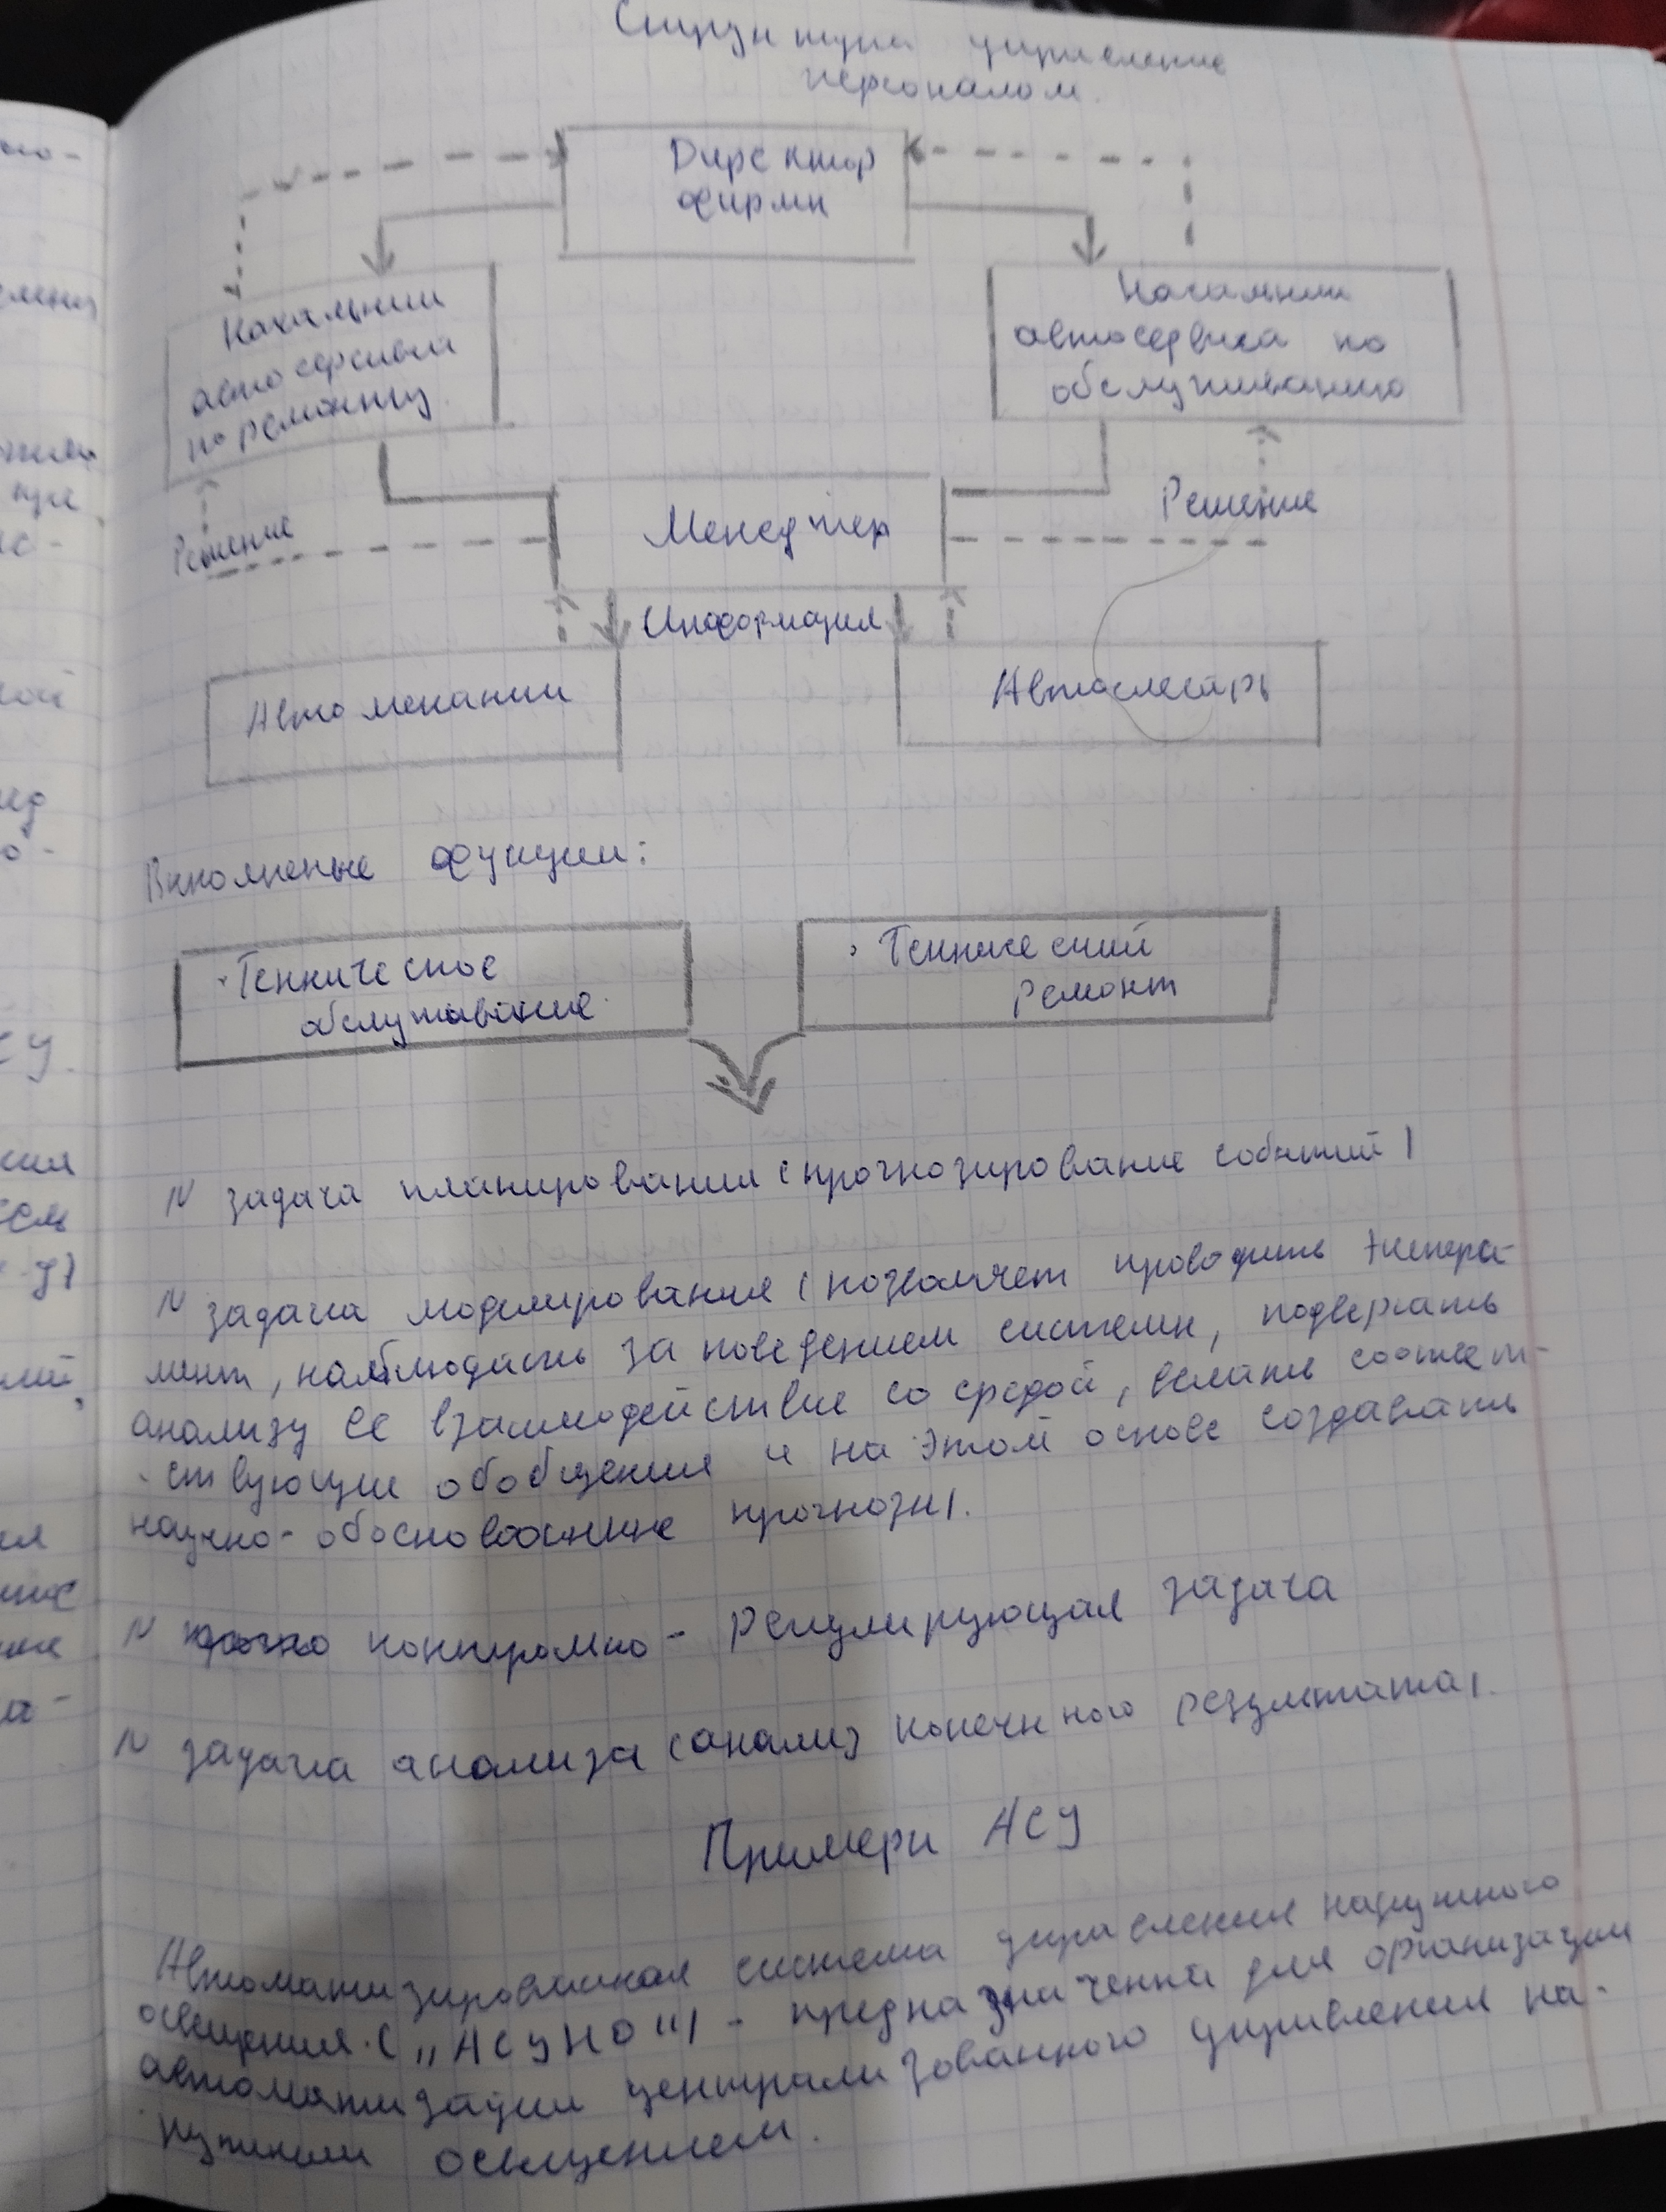 Структура управление
персоналом.
Директор
фирмы
Начальник
автосервиса
по ремонту.
Начальник
автосервиса по
обслуживанию
Решение
Менеджер
Решение
Информация
Автомеханики
Автослесарь
Выполненые функции:
· Техническое
обслуживание.
· Технический
ремонт
N задача планирования (прогнозирование событий)
N задача моделирования (позволяет проводить экспера-
мент, наблюдать за поведением системы, подвергать
анализу ее взаимодействие со средой, делать соответ-
-ствующие обобщения и на этом основе создавать
научно-обоснованные прогнозы).
N контрольно-Регулирующая задача
N задача анализа (анализ конечного результата).
Примеры АСУ
Автоматизированная система управления наружного
освещения. („АСУНО") - предназначенна для организации
автоматизации централизованного управления на-
ружным освещением.